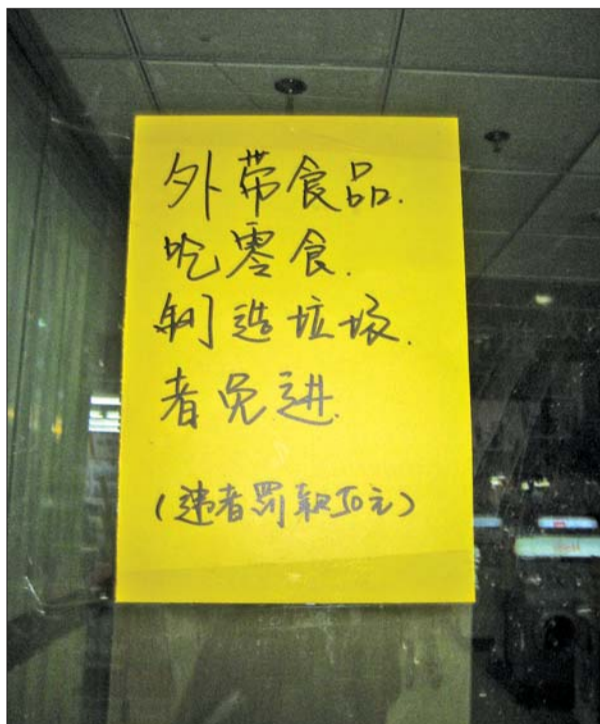 外带食品.
吃零食.
制造垃圾.
者免进.
(违者罚款50元)